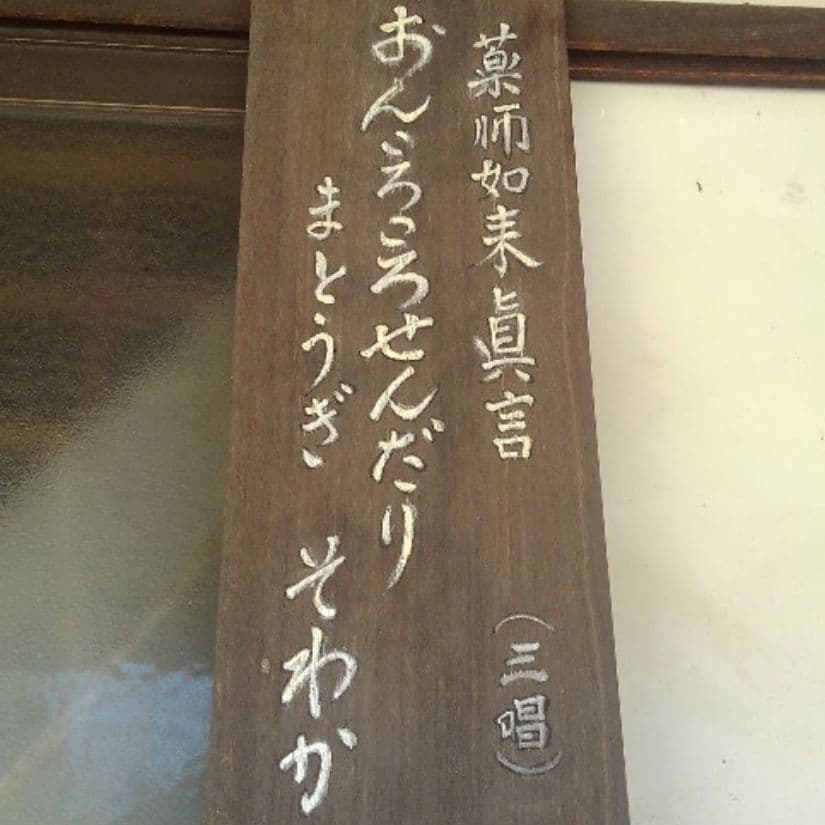 薬師如来眞言 （三唱）
おんころころせんだり
まとうぎ そわか